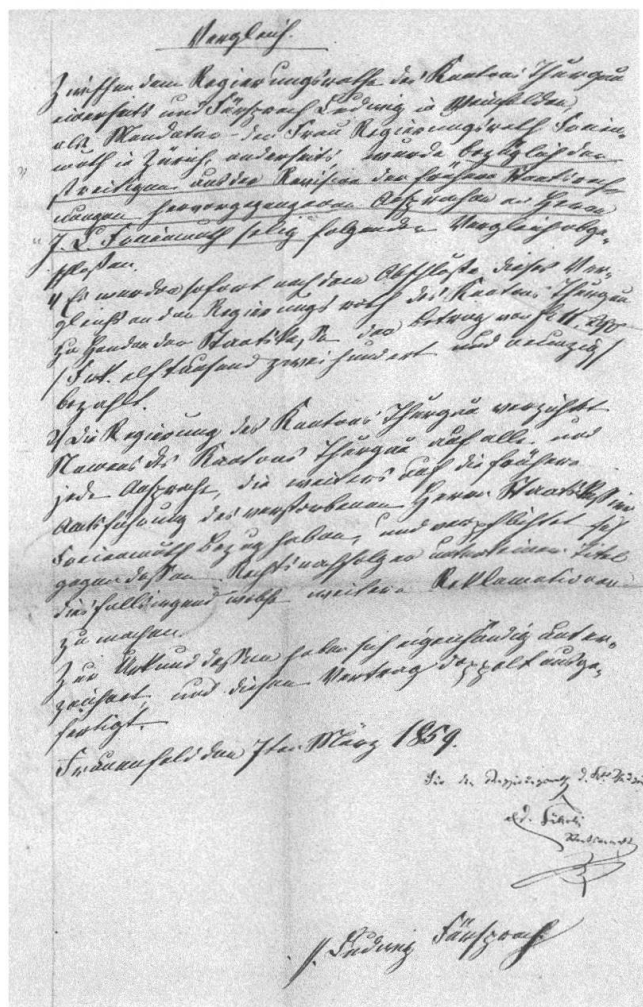 Vergleich.
Zwischen dem Regierungsrathe des Kantons Thurgau
einerseits und Fürsprech Ludwig in Weinfelden
als Mandatar der Frau Regierungsrath Freien-
muth in Zürich, anderseits, wurde bezüglich der
streitigen aus der Revision der frühern Staatsrech-
nungen hervorgegangenen Ansprachen an Herrn
J. C. Freienmuth selig folgender Vergleich abge-
schlossen.
1) Es werden sofort nach dem Abschlusse dieses Ver-
gleichs an den Regierungsrath des Kantons Thurgau
zu Handen der Staatskasse der Betrag von f. 11,290
/ Frk. elftausend zweihundert und neunzig /
bezahlt.
2) Die Regierung des Kantons Thurgau verzichtet
Namens des Kantons Thurgau auf alle und
jede Ansprache, die weiters auf die frühere
Amtsführung des verstorbenen Herrn Staatskassier
Freienmuth Bezug haben, und verpflichtet sich
gegen dessen Rechtsnachfolger unter keinem Titel
diesfalls irgend welche weitere Reklamationen
zu machen.
Zur Urkund dessen haben sich eigenhändig unter-
zeichnet, und diesen Vertrag doppelt ausge-
fertigt.
Frauenfeld den 7ten März 1859.
Für den Regierungsrath d. Kts.
J. Ludwig Fürsprech